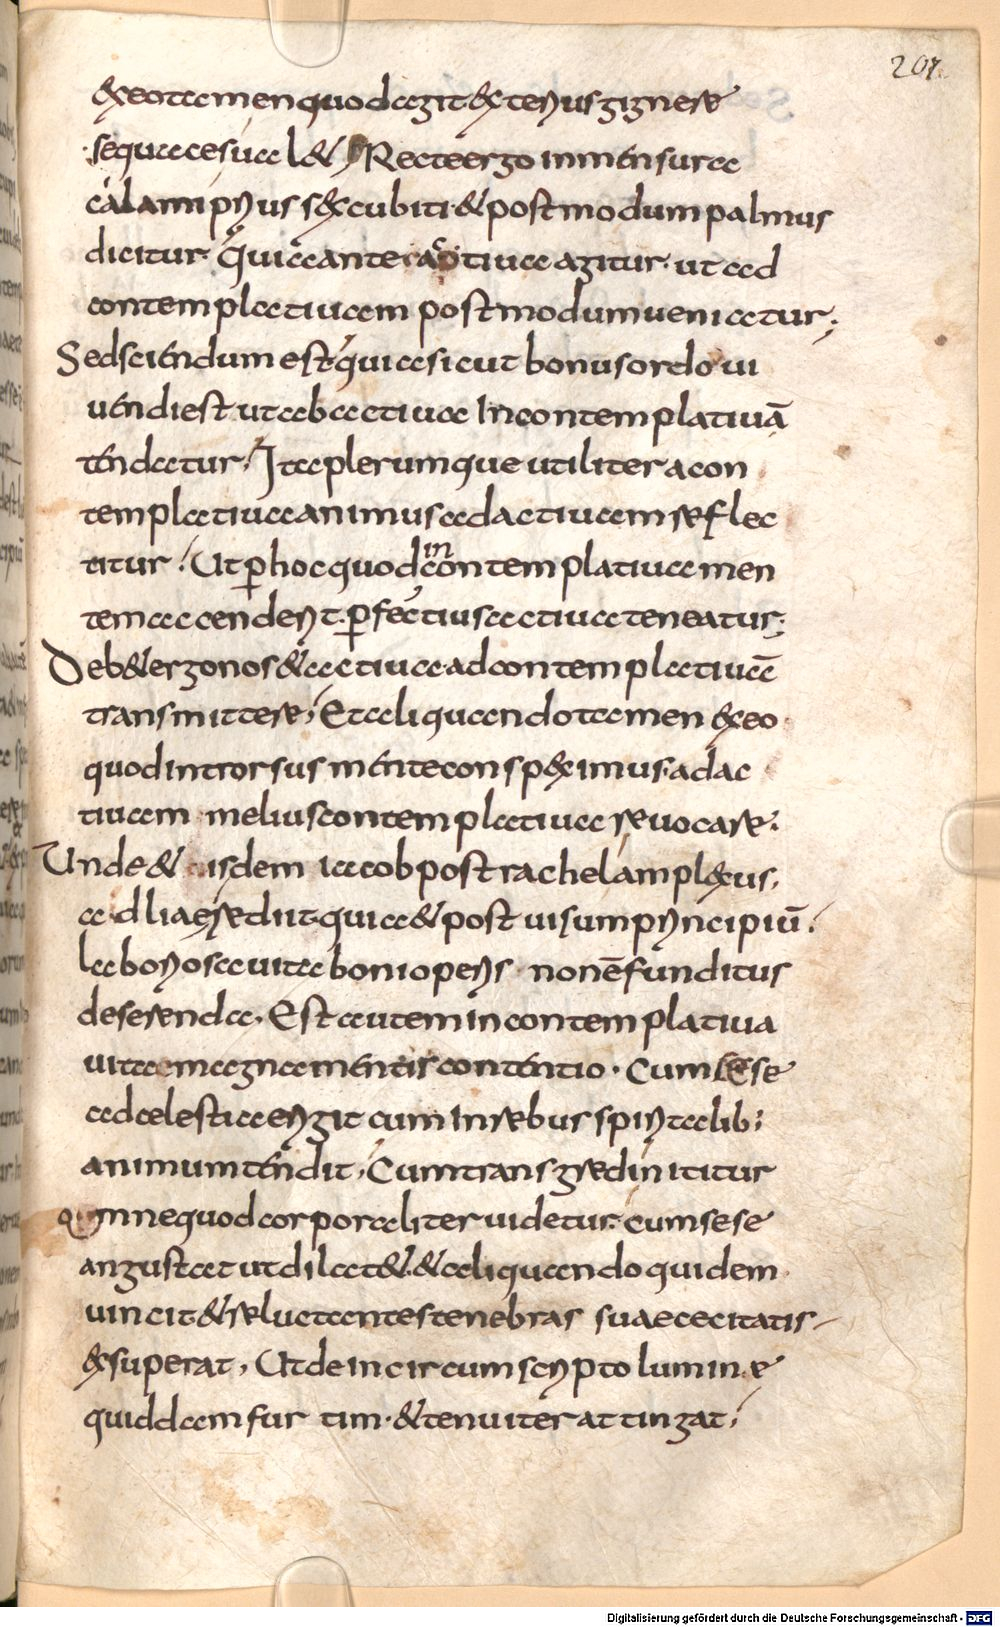 207.
& ex eo tamen quod agit exterius gignere
se quae aesuual& Recte ergo in mensura
calami prius sex cubiti & postmodum palmus
dicitur. quia ante activa agitur. ut ad
contemplativam postmodum veniatur;
Sed sciendum est. quia sicut bonus ordo vi
vendi est ut ab activa In contemplativā
tendatur. Ita plerumque utiliter a con
templativa animus ad activam reflec
titur. Ut ꝑ hoc quod in contemplativa men
tem accenderit. ꝑfectius activa teneatur;
Deb& ergo nos & activa. ad contemplativā
transmittere. Et aliquando tamen ex eo
quod introrsus mente conspeximus. ad ac
tivam melius contemplativa revocare;
Unde & isdem iacob post rachel amplexus.
ad liae rediit. quia & post visum principiū.
laboriosa vita boni operis non ē funditus
deserenda. Est autem in contemplativa
vita magna mentis contentio. Cum sese
ad celestia erigit cum In rebus spiritalib;
animum tendit. Cum transgredi nititur
omne quod corporaliter videtur. cum sese
angustat ut dilat&. & aliquando quidem
vincit & reluctantes tenebras suae cecitatis
exsuperat. Ut de incircumscripto lumine
quiddam furtim. & tenuiter attingat.
Digitalisierung gefördert durch die Deutsche Forschungsgemeinschaft - DFG